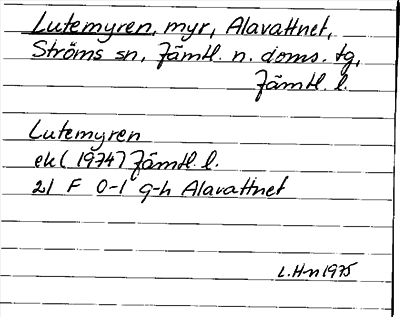 Lutemyren, myr, Alavattnet,
Ströms sn, Jämtl. n. doms. tg,
Jämtl. l.
Lutemyren
ek (1974) Jämtl. l.
21 F 0-1 g-h Alavattnet
L.H-n 1975